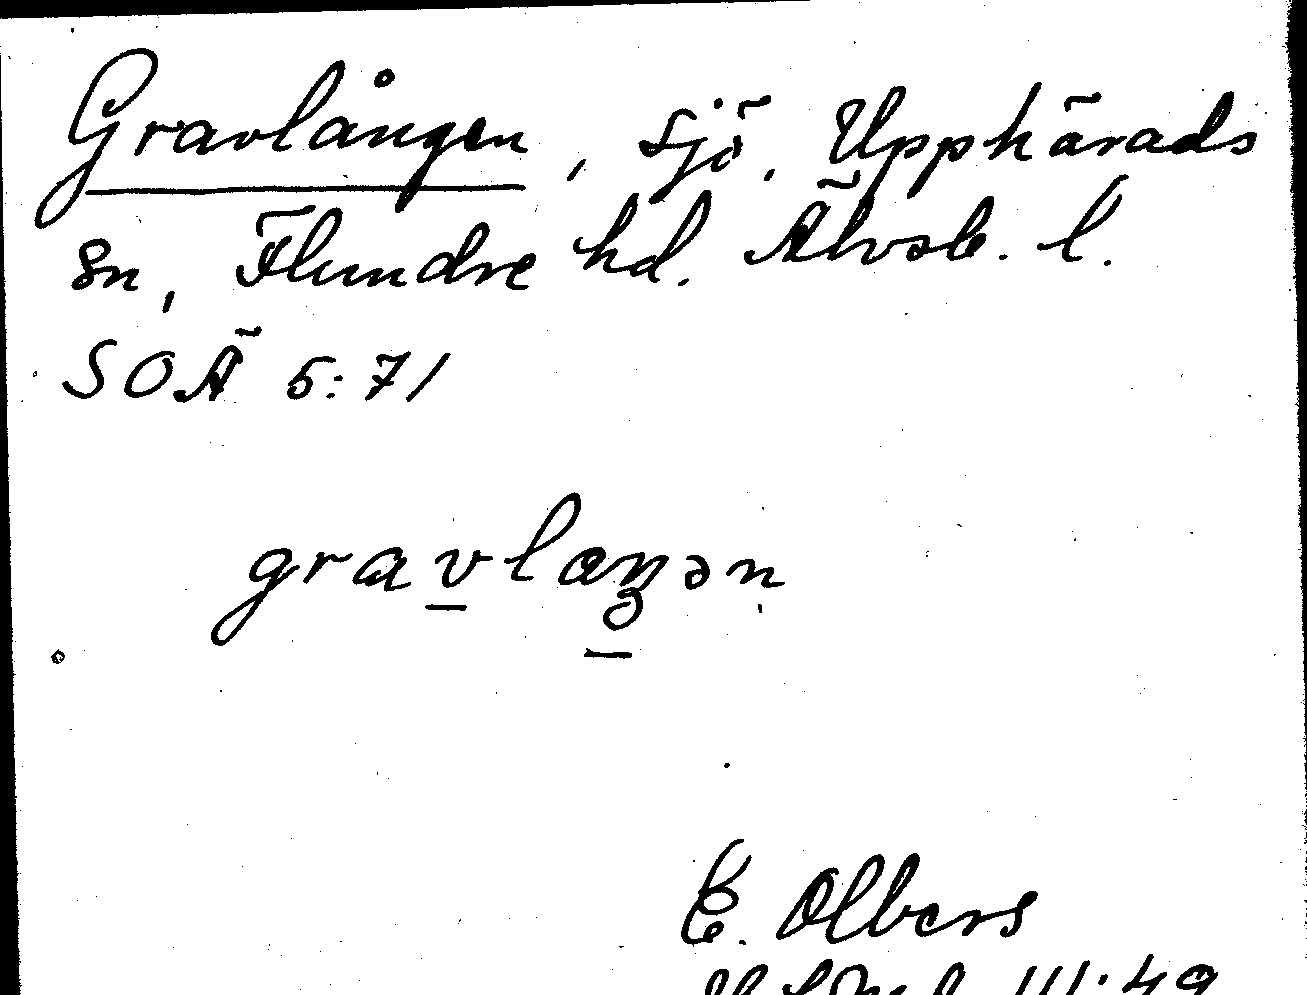 Gravlången, sjö, Upphärads
sn, Flundre hd. Älvsb. l.
SOÄ 5:71
gravlaŋən
E. Olbers